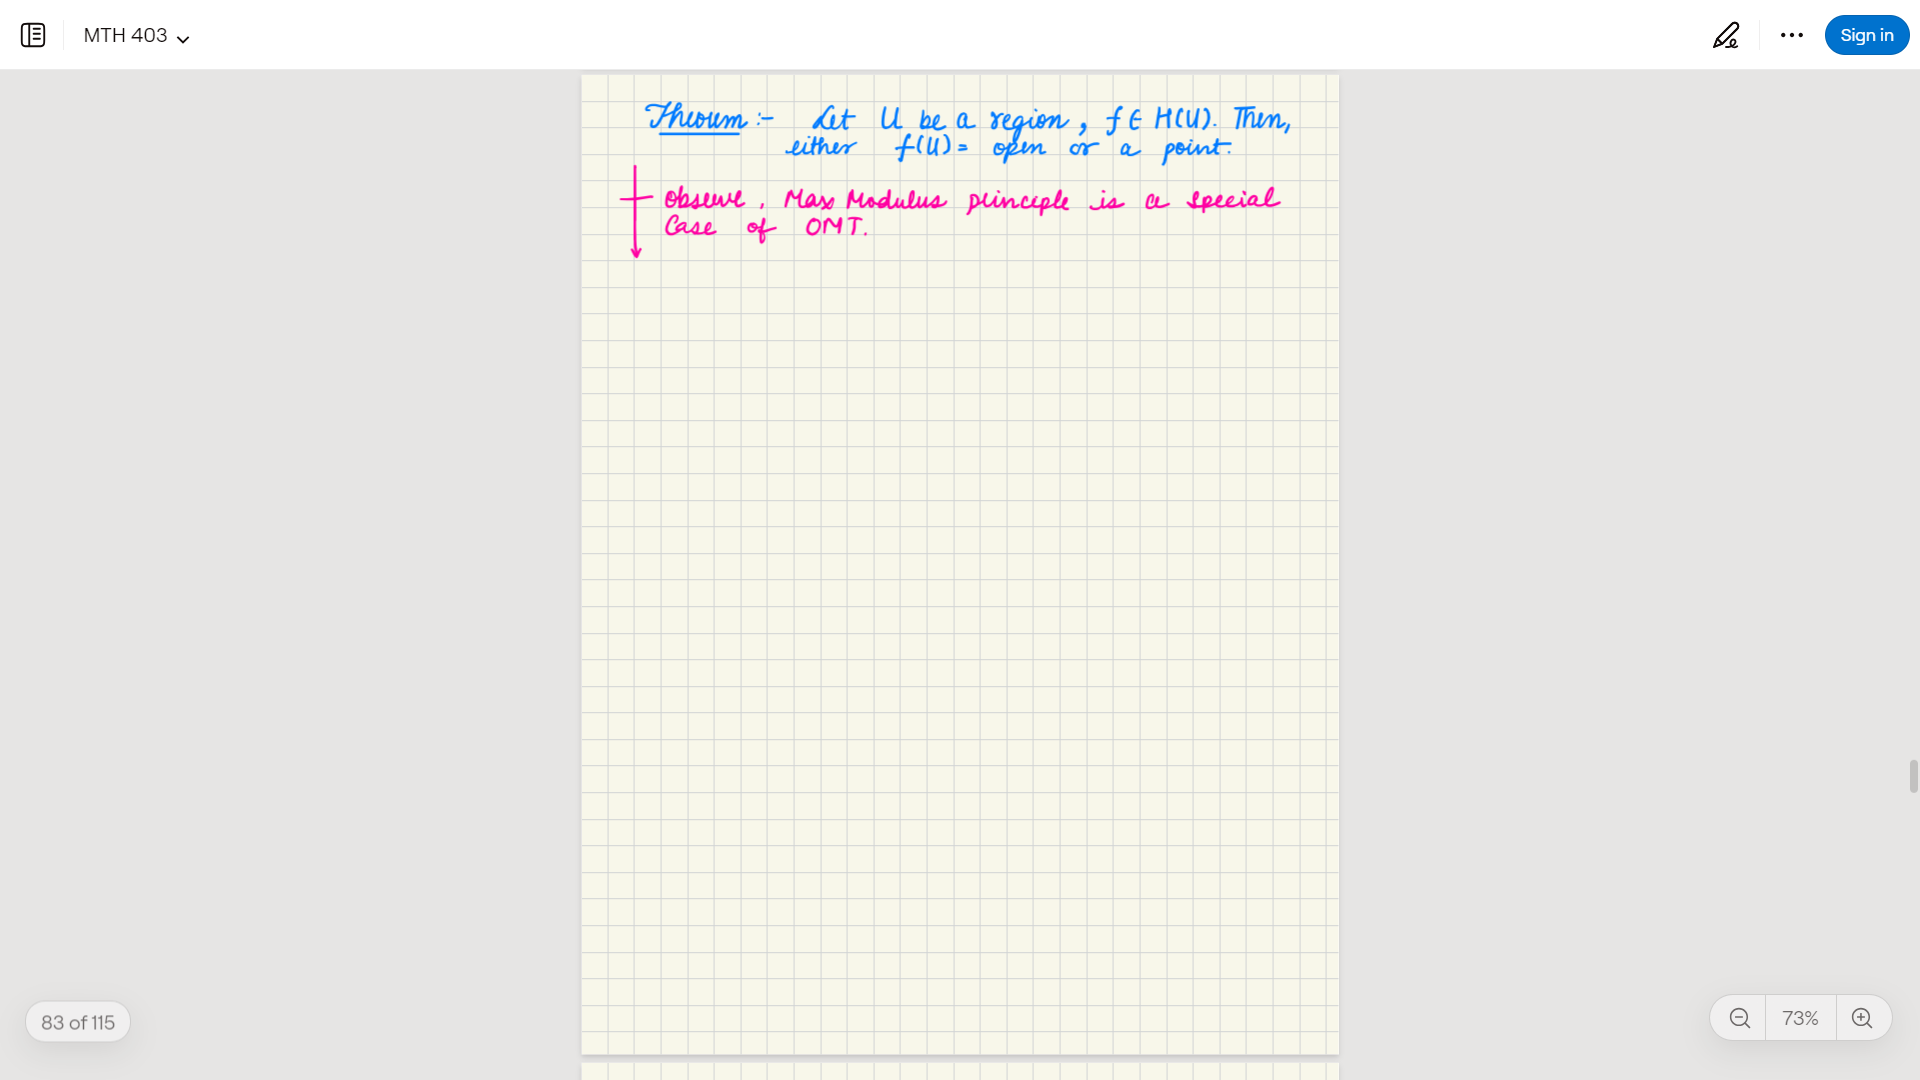 MTH 403
Sign in
Theorem :- Let U be a region, f ∈ H(U). Then,
either f(U) = open or a point.
Observe, Max Modulus principle is a special
Case of OMT.
83 of 115
73%